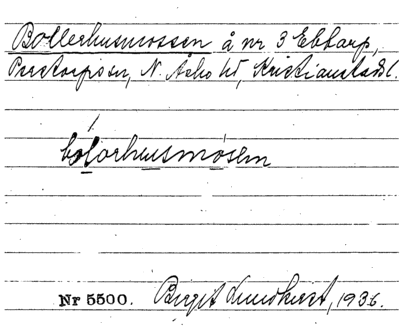 Bollerhusmossen å nr 3 Ebbarp,
Perstorps sn, N. Åsbo hd, Kristianstads l.
bolorhusmosen
Nr 5500. Birgit Lundkvist, 1936.